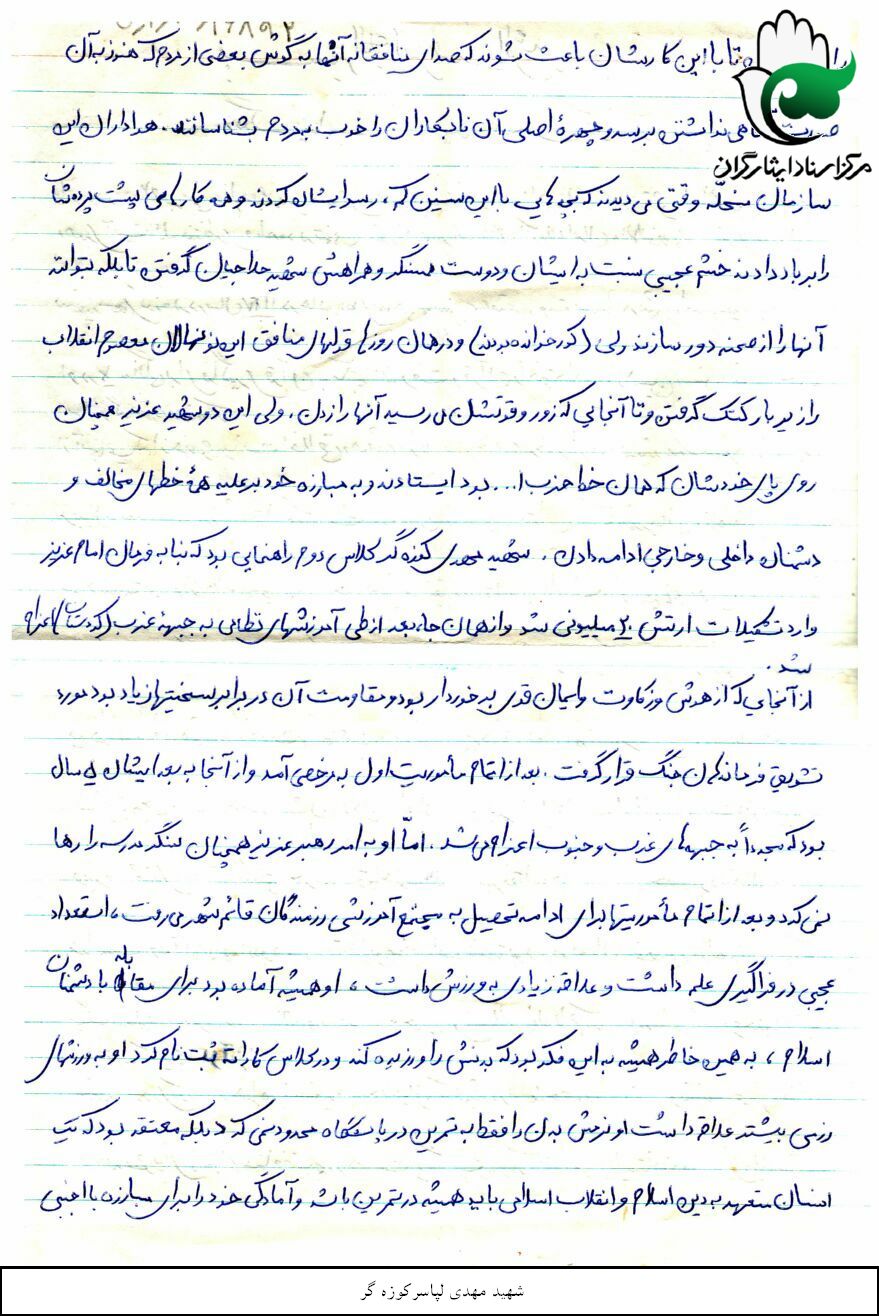 تا با این کارشان باعث شوند که صدای منافقانه آنها به گوش بعضی از مردم که هنوز به آن
نداشتن برسد و چهرهٔ اصلی آن نابکاران را خوب به مردم بشناسانند. هواداران این
مرکز اسناد ایثارگران
سازمان منحلّه وقتی می دیدند که بچه هایی با این سنین کم، رسوایشان کردند و همه کارهای پشت پرده شان
را بر باد دادند خشم عجیبی نسبت به ایشان و دوست همسنگر و همراهش شهید حلاجیان گرفتن تا بلکه بتوانند
آنها را از صحنه دور سازند ولی (کور خوانده بودند) و در همان روزها قولهای منافق این نونهالان معصوم انقلاب
را زیر بار کتک گرفتن و تا آنجایی که زور و قوتشان می رسید آنها را زدن. ولی این دو شهید عزیز همچنان
روی پای خودشان که همان خط حزب ا... بود ایستادند و به مبارزه خود بر علیه همهٔ خطهای مخالف و
دشمنان داخلی و خارجی ادامه دادن. شهید مهدی کوزه گر کلاس دوم راهنمایی بود که بنا به فرمان امام عزیز
وارد تشکیلات ارتش ۲۰ میلیونی شد و از همان جا، بعد از طی آموزشهای نظامی به جبههٔ غرب (کردستان) اعزام
شد.
از آنجایی که از هوش و زکاوت و ایمان قوی برخوردار بود و مقاومت آن در برابر سختیها زیاد بود مورد
تشویق فرماندهان جنگ قرار گرفت. بعد از اتمام مأموریت اول به مرخصی آمد و از آنجا به بعد ایشان ۵ سال
بود که مجدداً به جبهه های غرب و جنوب اعزام می شد. امّا او به امر رهبر عزیز همچنان سنگر مدرسه را رها
نمی کرد و بعد از اتمام مأموریتها برای ادامه تحصیل به مجتمع آموزشی رزمندگان قائم شهر می رفت، استعداد
عجیبی در فراگیری علم داشت و علاقه زیادی به ورزش داشت، او همیشه آماده بود برای مقابله با دشمنان
اسلام، به همین خاطر همیشه به این فکر بود که بدنش را ورزیده کند و در کلاس کاراته ثبت نام کرد او به ورزشهای
رزمی بیشتر علاقه داشت او نرمش بدن را فقط به تمرین در باشگاه محدود نمی کرد بلکه معتقد بود که یک
انسان متعهد به دین اسلام و انقلاب اسلامی باید همیشه در تمرین باشد و آمادگی خود را برای مبارزه با اجنبی
شهید مهدی لپاسر کوزه گر